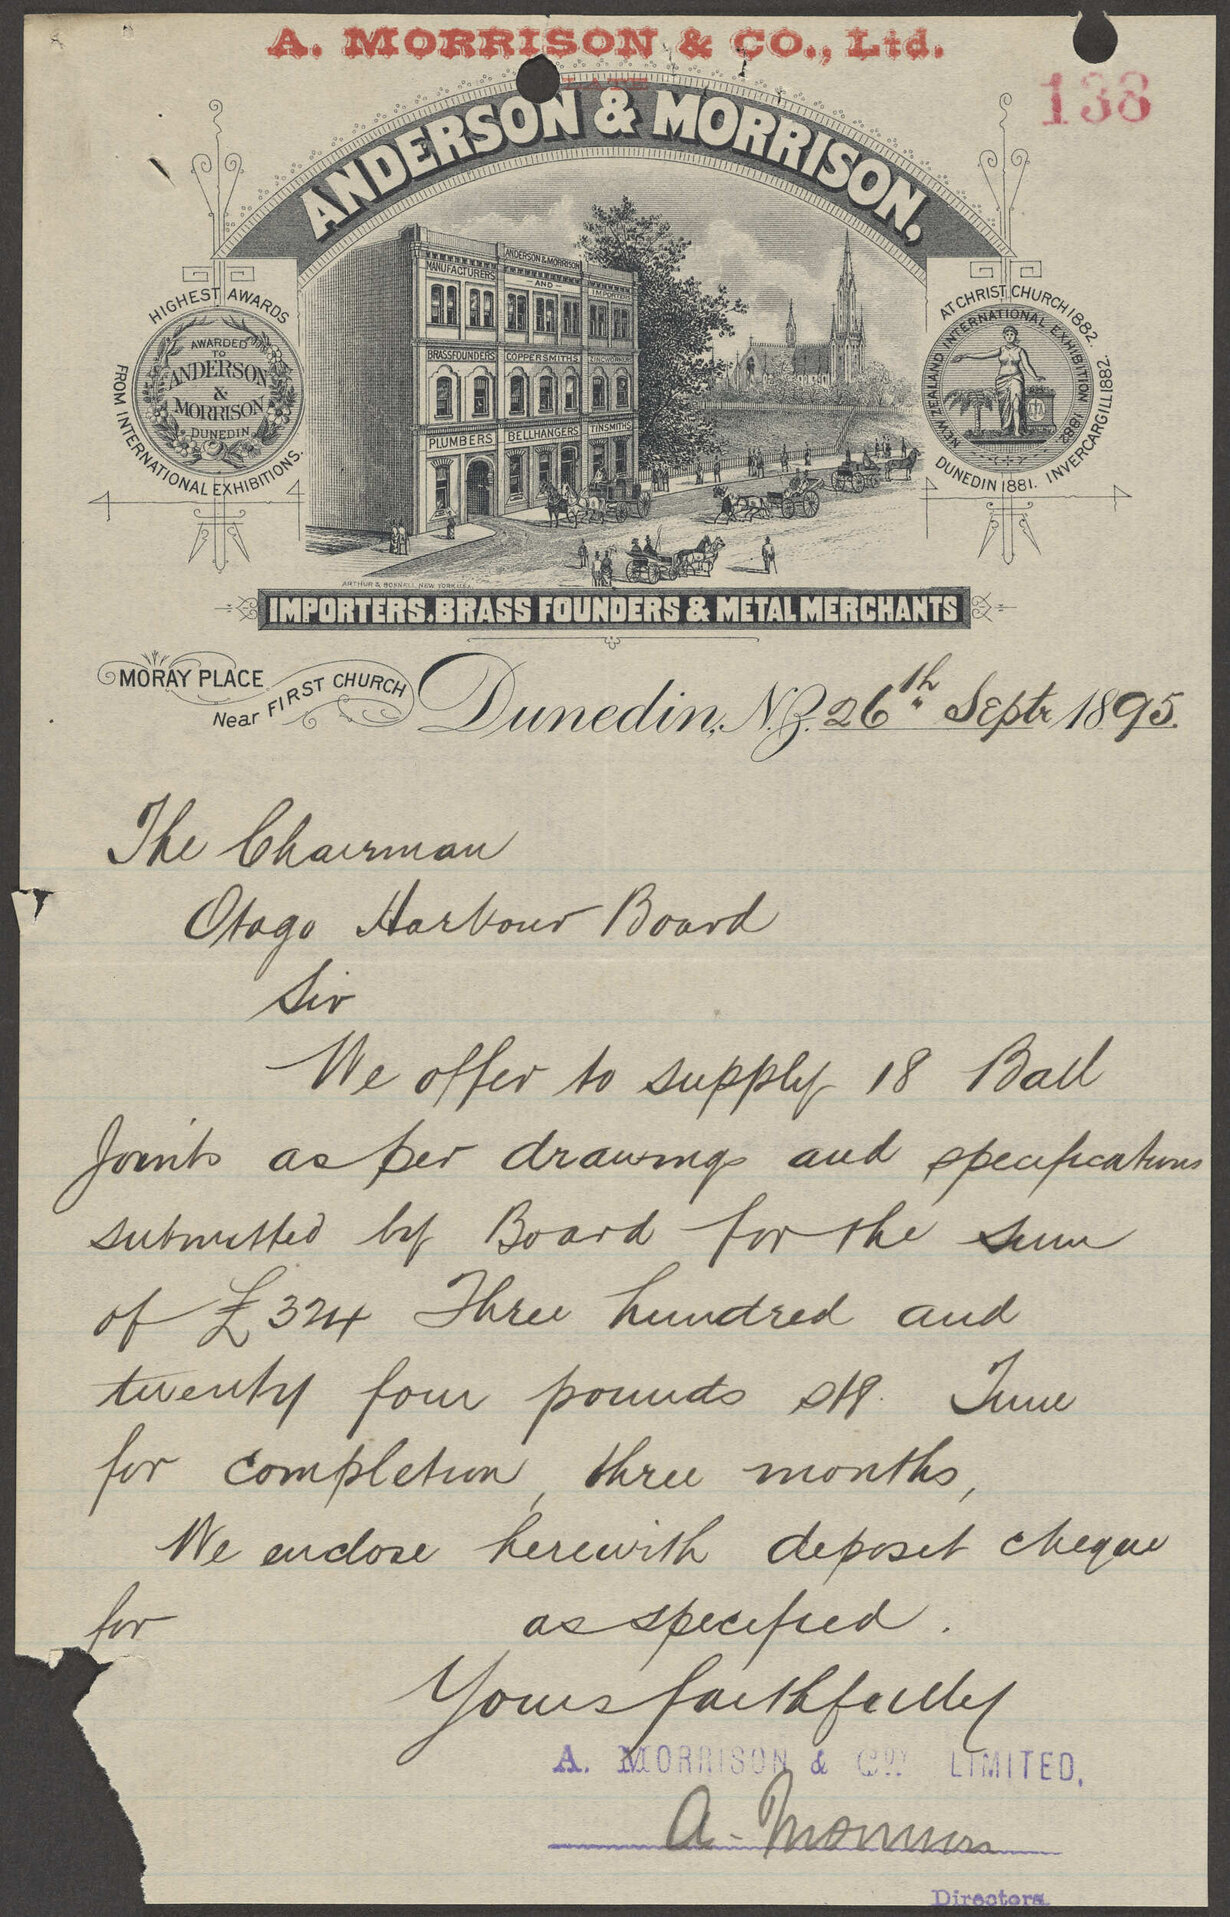 A. MORRISON & CO., Ltd.
LATE
138
ANDERSON & MORRISON.
HIGHEST AWARDS
FROM INTERNATIONAL EXHIBITIONS.
AWARDED
TO
ANDERSON
&
MORRISON
DUNEDIN
ANDERSON & MORRISON
MANUFACTURERS
AND
IMPORTERS
BRASSFOUNDERS
COPPERSMITHS
PLUMBERS
BELLHANGERS
TINSMITHS
AT CHRISTCHURCH 1882.
DUNEDIN 1881. INVERCARGILL 1882.
NEW ZEALAND INTERNATIONAL EXHIBITION 1882
ARTHUR & BONNELL NEW YORK U.S.A.
IMPORTERS, BRASS FOUNDERS & METAL MERCHANTS
MORAY PLACE
Near FIRST CHURCH
Dunedin, N.Z. 26th Septr 1895.
The Chairman
Otago Harbour Board
Sir
We offer to supply 18 Ball
Joints as per drawings and specifications
submitted by Board for the sum
of £324 Three hundred and
twenty four pounds stg. Time
for completion, three months,
We enclose herewith deposit cheque
for as specified.
Yours faithfully
A. MORRISON & COY. LIMITED.
A. Morrison
Directors.